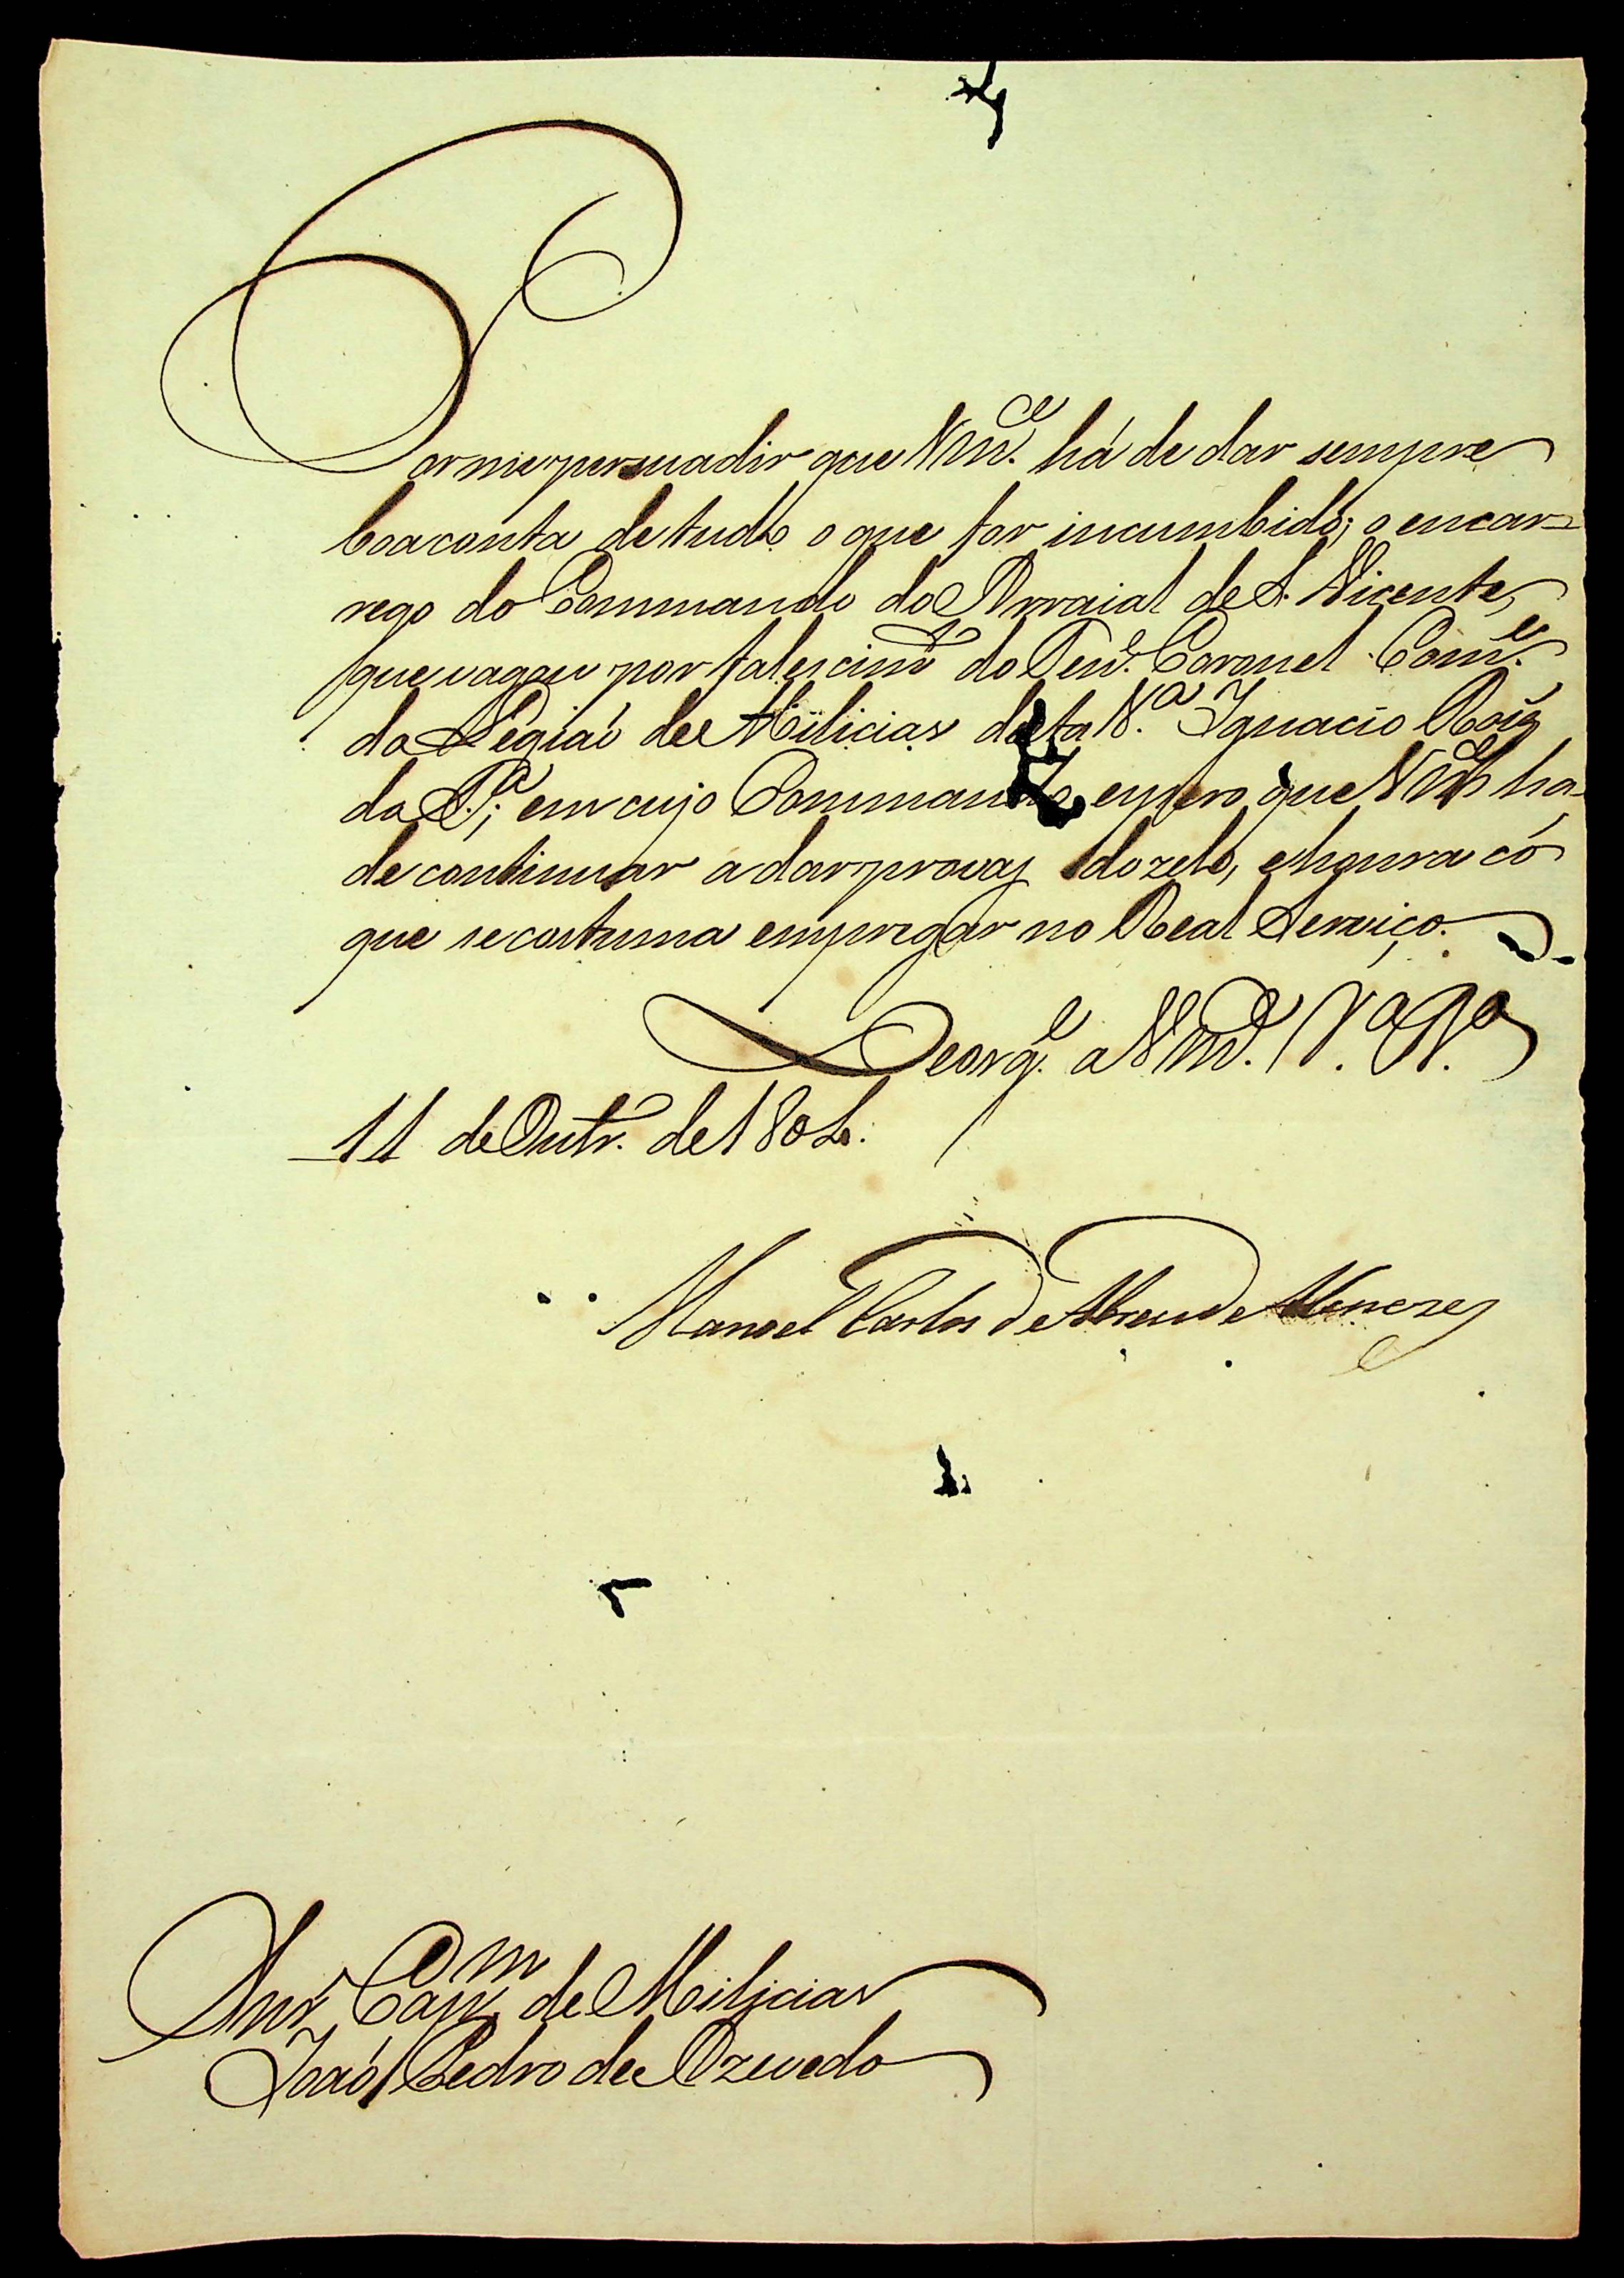 Por me persuadir que Vm.ce há de dar sempre
boa conta de tudo o que for incumbido; o encar=
rego do Commando do Arraial de S. Vicente,
que vagou por falescim.to do Ten.e Coronel Com.e
da Legiaõ de Milicias desta V.a Ignacio Roiz
da S.a; em cujo Commando, espero que Vm.ce ha-
de continuar a dar provas do zelo, e honra có
que se costuma empregar no Real Serviço.
Deos g.e a Vm.ce V.a
11 de Outr.o de 1804.
Manoel Carlos de Abreu de Menezes
Snr. Cap.m de Milicias
Joaõ Pedro de Azevedo